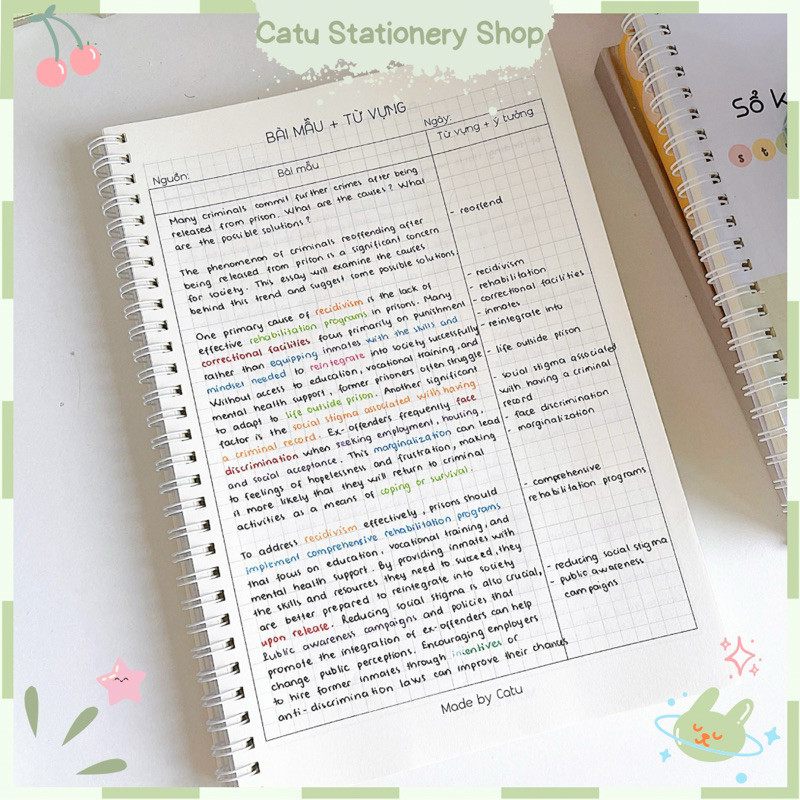 Catu Stationery Shop
BÀI MẪU + TỪ VỰNG
Nguồn:
Ngày:
Bài mẫu
Từ vựng + ý tưởng
Many criminals commit further crimes after being
released from prison. What are the causes? What
are the possible solutions?
The phenomenon of criminals reoffending after
being released from prison is a significant concern
for society. This essay will examine the causes
behind this trend and suggest some possible solutions.
One primary cause of recidivism is the lack of
effective rehabilitation programs in prisons. Many
correctional facilities focus primarily on punishment
rather than equipping inmates with the skills and
mindset needed to reintegrate into society successfully
Without access to education, vocational training, and
mental health support, former prisoners often struggle
to adapt to life outside prison. Another significant
factor is the social stigma associated with having
a criminal record. Ex-offenders frequently face
discrimination when seeking employment, housing,
and social acceptance. This marginalization can lead
to feelings of hopelessness and frustration, making
it more likely that they will return to criminal
activities as a means of coping or survival.
To address recidivism effectively, prisons should
implement comprehensive rehabilitation programs
that focus on education, vocational training, and
mental health support. By providing inmates with
the skills and resources they need to succeed, they
are better prepared to reintegrate into society
upon release. Reducing social stigma is also crucial,
Public awareness campaigns and policies that
promote the integration of ex-offenders can help
change public perceptions. Encouraging employers
to hire former inmates through incentives or
anti-discrimination laws can improve their chances
- reoffend
- recidivism
- rehabilitation
- correctional facilities
- inmates
- reintegrate into
- life outside prison
- social stigma associated
with having a criminal
record
- face discrimination
- marginalization
- comprehensive
rehabilitation programs
- reducing social stigma
- public awareness
campaigns
Made by Catu
Sổ
s t